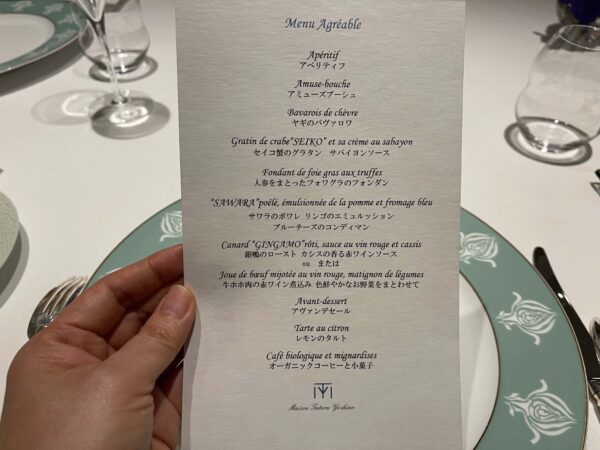 Menu Agréable
Apéritif
アペリティフ
Amuse-bouche
アミューズブーシュ
Bavarois de chèvre
ヤギのバヴァロワ
Gratin de crabe“SEIKO” et sa crème au sabayon
セイコ蟹のグラタン サバイヨンソース
Fondant de foie gras aux truffes
人参をまとったフォワグラのフォンダン
“SAWARA”poêlé, émulsionnée de la pomme et fromage bleu
サワラのポワレ リンゴのエミュルッション
ブルーチーズのコンディマン
Canard “GINGAMO”rôti, sauce au vin rouge et cassis
銀鴨のロースト カシスの香る赤ワインソース
ou または
Joue de bœuf mijotée au vin rouge, matignon de légumes
牛ホホ肉の赤ワイン煮込み 色鮮やかなお野菜をまとわせて
Avant-dessert
アヴァンデセール
Tarte au citron
レモンのタルト
Café biologique et mignardises
オーガニックコーヒーと小菓子
Maison Tateru Yoshino